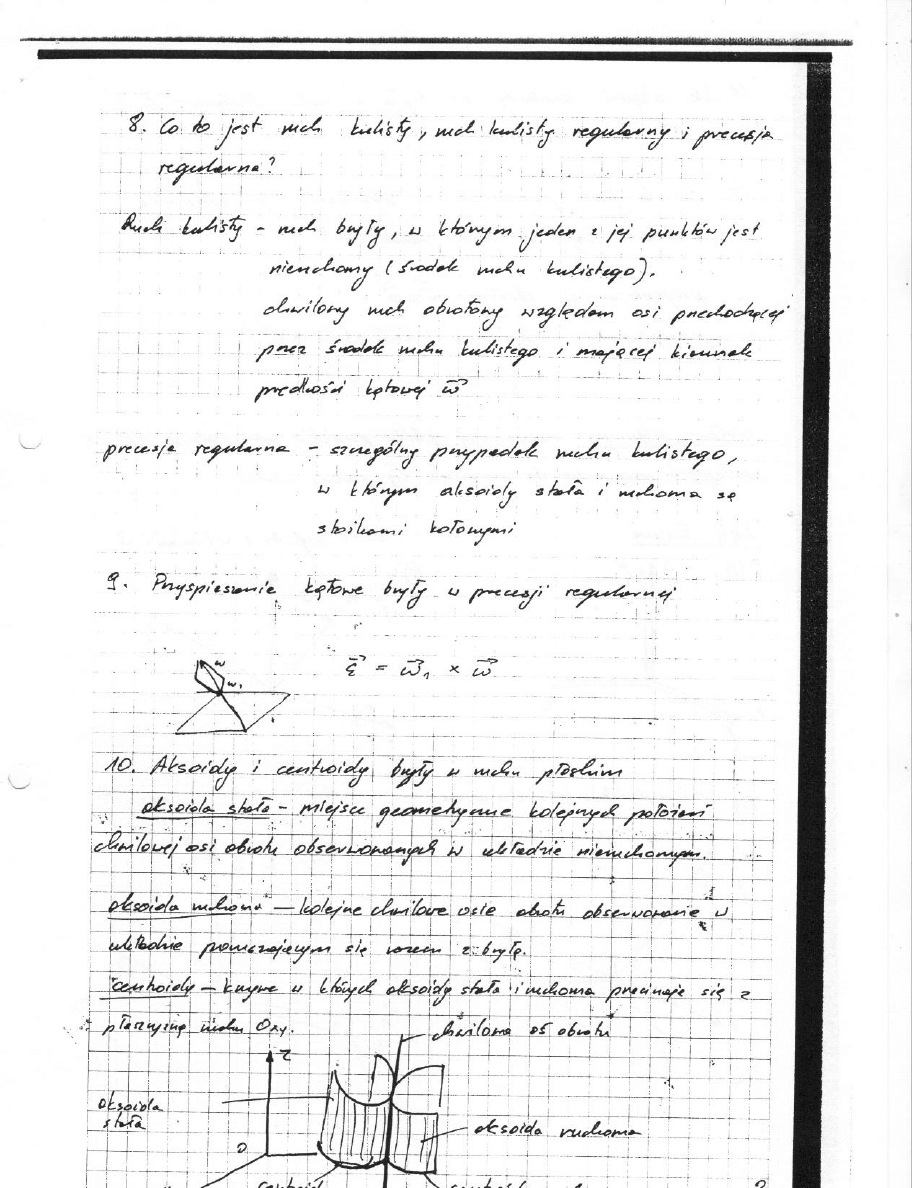 8. Co to jest ruch kulisty, ruch kulisty regularny i precesja
regularna?
Ruch kulisty - ruch bryły, w którym jeden z jej punktów jest
nieruchomy (środek ruchu kulistego).
chwilowy ruch obrotowy względem osi przechodzącej
przez środek ruchu kulistego i mającej kierunek
prędkości kątowej ω⃗
precesja regularna - szczególny przypadek ruchu kulistego,
w którym aksoidy stała i ruchoma są
stożkami kołowymi
9. Przyspieszenie kątowe bryły w precesji regularnej
ω
ω₁
ε⃗ = ω⃗₁ × ω⃗
10. Aksoidy i centroidy bryły w ruchu płaskim
aksoida stała - miejsce geometryczne kolejnych położeń
chwilowej osi obrotu obserwowanych w układzie nieruchomym.
aksoida ruchoma - kolejne chwilowe osie obrotu obserwowane w
układzie poruszającym się wraz z bryłą.
centroidy - krzywe w których aksoidy stała i ruchoma przecinają się z
płaszczyzną ruchu Oxy.
chwilowa oś obrotu
z
aksoida
stała
aksoida ruchoma
O